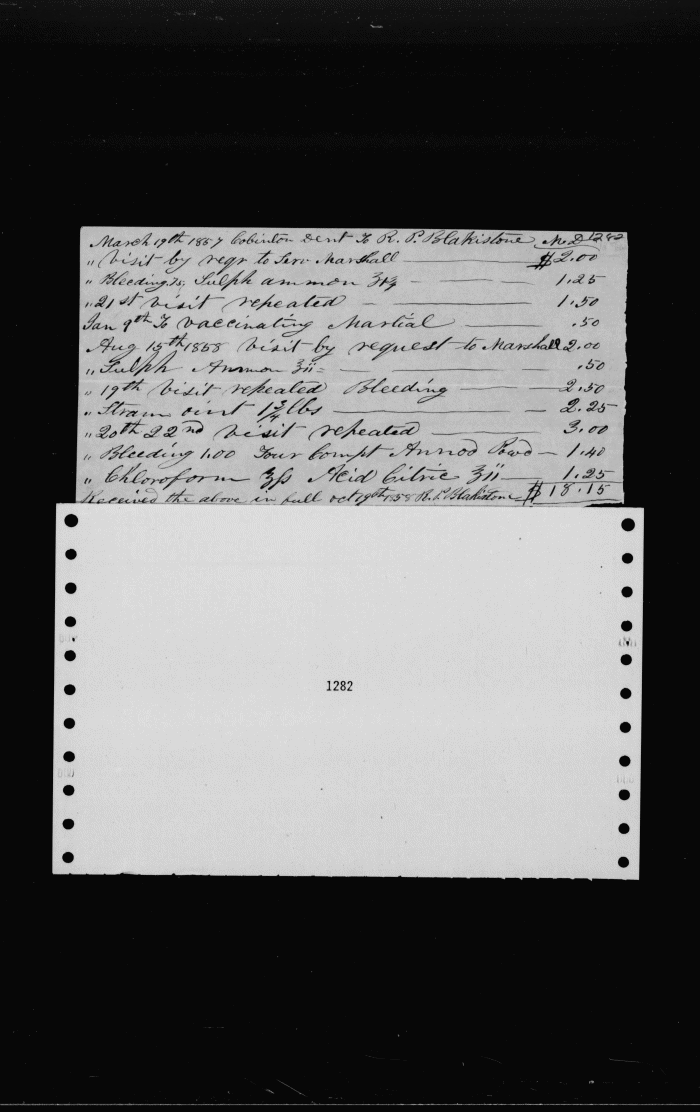 March 19th 1857 Cobinton Dent To R. P. Blakistone M.D 1282
" visit by reqr to Serv Marshall $2.00
" Bleeding .75, Sulph ammon 1.25
" 21st visit repeated 1.50
Jan 9th To vaccinating Martial .50
Aug 15th 1858 visit by request to Marshall 2.00
" Sulph Ammon ʒii .50
" 19th visit repeated Bleeding 2.50
" Stram oint 1 3/4 lbs 2.25
" 20th 22nd visit repeated 3.00
" Bleeding 1.00 Four Compt Powd 1.40
" Chloroform ʒſs Acid Citric ʒii 1.25
Received the above in full oct 19th 1858 R. P. Blakistone $18.15
1282